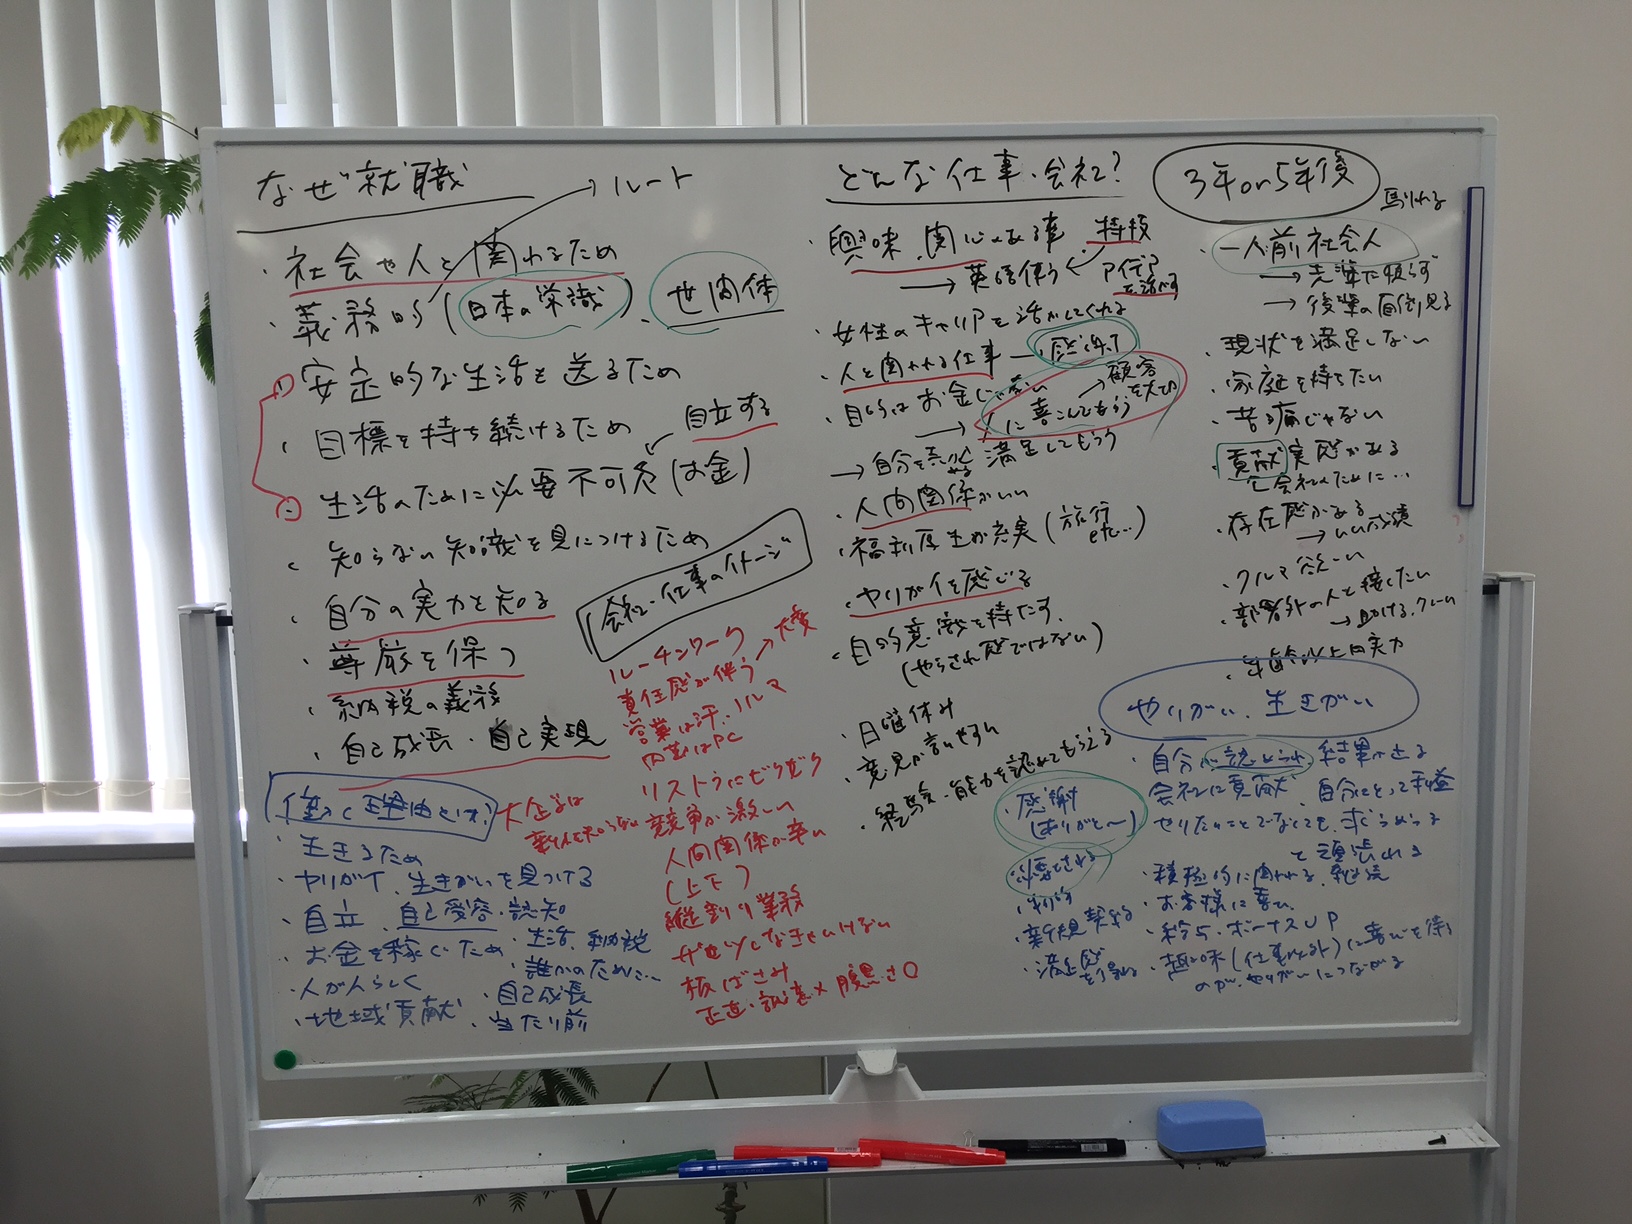 なぜ就職
→ルート
・社会や人と関わるため
・義務的(日本の常識)、世間体
・安定的な生活を送るため
・目標を持ち続けるため
自立する
・生活のために必要不可欠(お金)
・知らない知識を身につけるため
・自分の実力を知る
・尊厳を保つ
・納税の義務
・自己成長・自己実現
働く理由とは?
・生きるため
・ヤリガイ、生きがいを見つける
・自立、自己受容・認知
・お金を稼ぐため
・生活、納税
・誰かのために…
・人が人らしく
・自己成長
・地域貢献
・当たり前
会社・仕事のイメージ
ルーチンワーク
責任感が伴う→大変
営業は汗、ノルマ
内勤はPC
リストラにビクビク
大企業は
競争が激しい
人間関係が辛い
(上下)
縦割り業務
板ばさみ
正直・誠実× 腹黒さ○
どんな仕事・会社?
・興味、関心がある事、特技
→英語使う
アイデアを活かす
・女性のキャリアを活かしてくれる
・人と関われる仕事
・目的はお金じゃない
→人に喜こんでもらう
→顧客を大切
満足してもらう
・人間関係がいい
・福利厚生が充実(旅行etc…)
・ヤリガイを感じる
・目的意識を持たす
(やらされ感ではない)
・日曜休み
・意見が言いやすい
・経験・能力を認めてもらえる
3年or5年後
馴れる
・一人前社会人
→先輩に頼らず
→後輩の面倒見る
・現状を満足しない
・家庭を持ちたい
・苦痛じゃない
・貢献実感がある
会社のために…
・存在感がある
→いい成績
・クルマ欲しい
・部署外の人と接したい
→助ける、クレーム
・年齢以上の実力
やりがい、生きがい
・自分が認められ、結果が出る
・会社に貢献
・自分にとって利益
・やりたいことでなくても、求められる
と頑張れる
・積極的に関われる、継続
・お客様に喜び
・給与・ボーナスUP
・趣味(仕事以外)に喜びを得る
のが、やりがいにつながる
・感謝
(ありがと〜)
・必要とされる
・新規契約
・満足感を得る